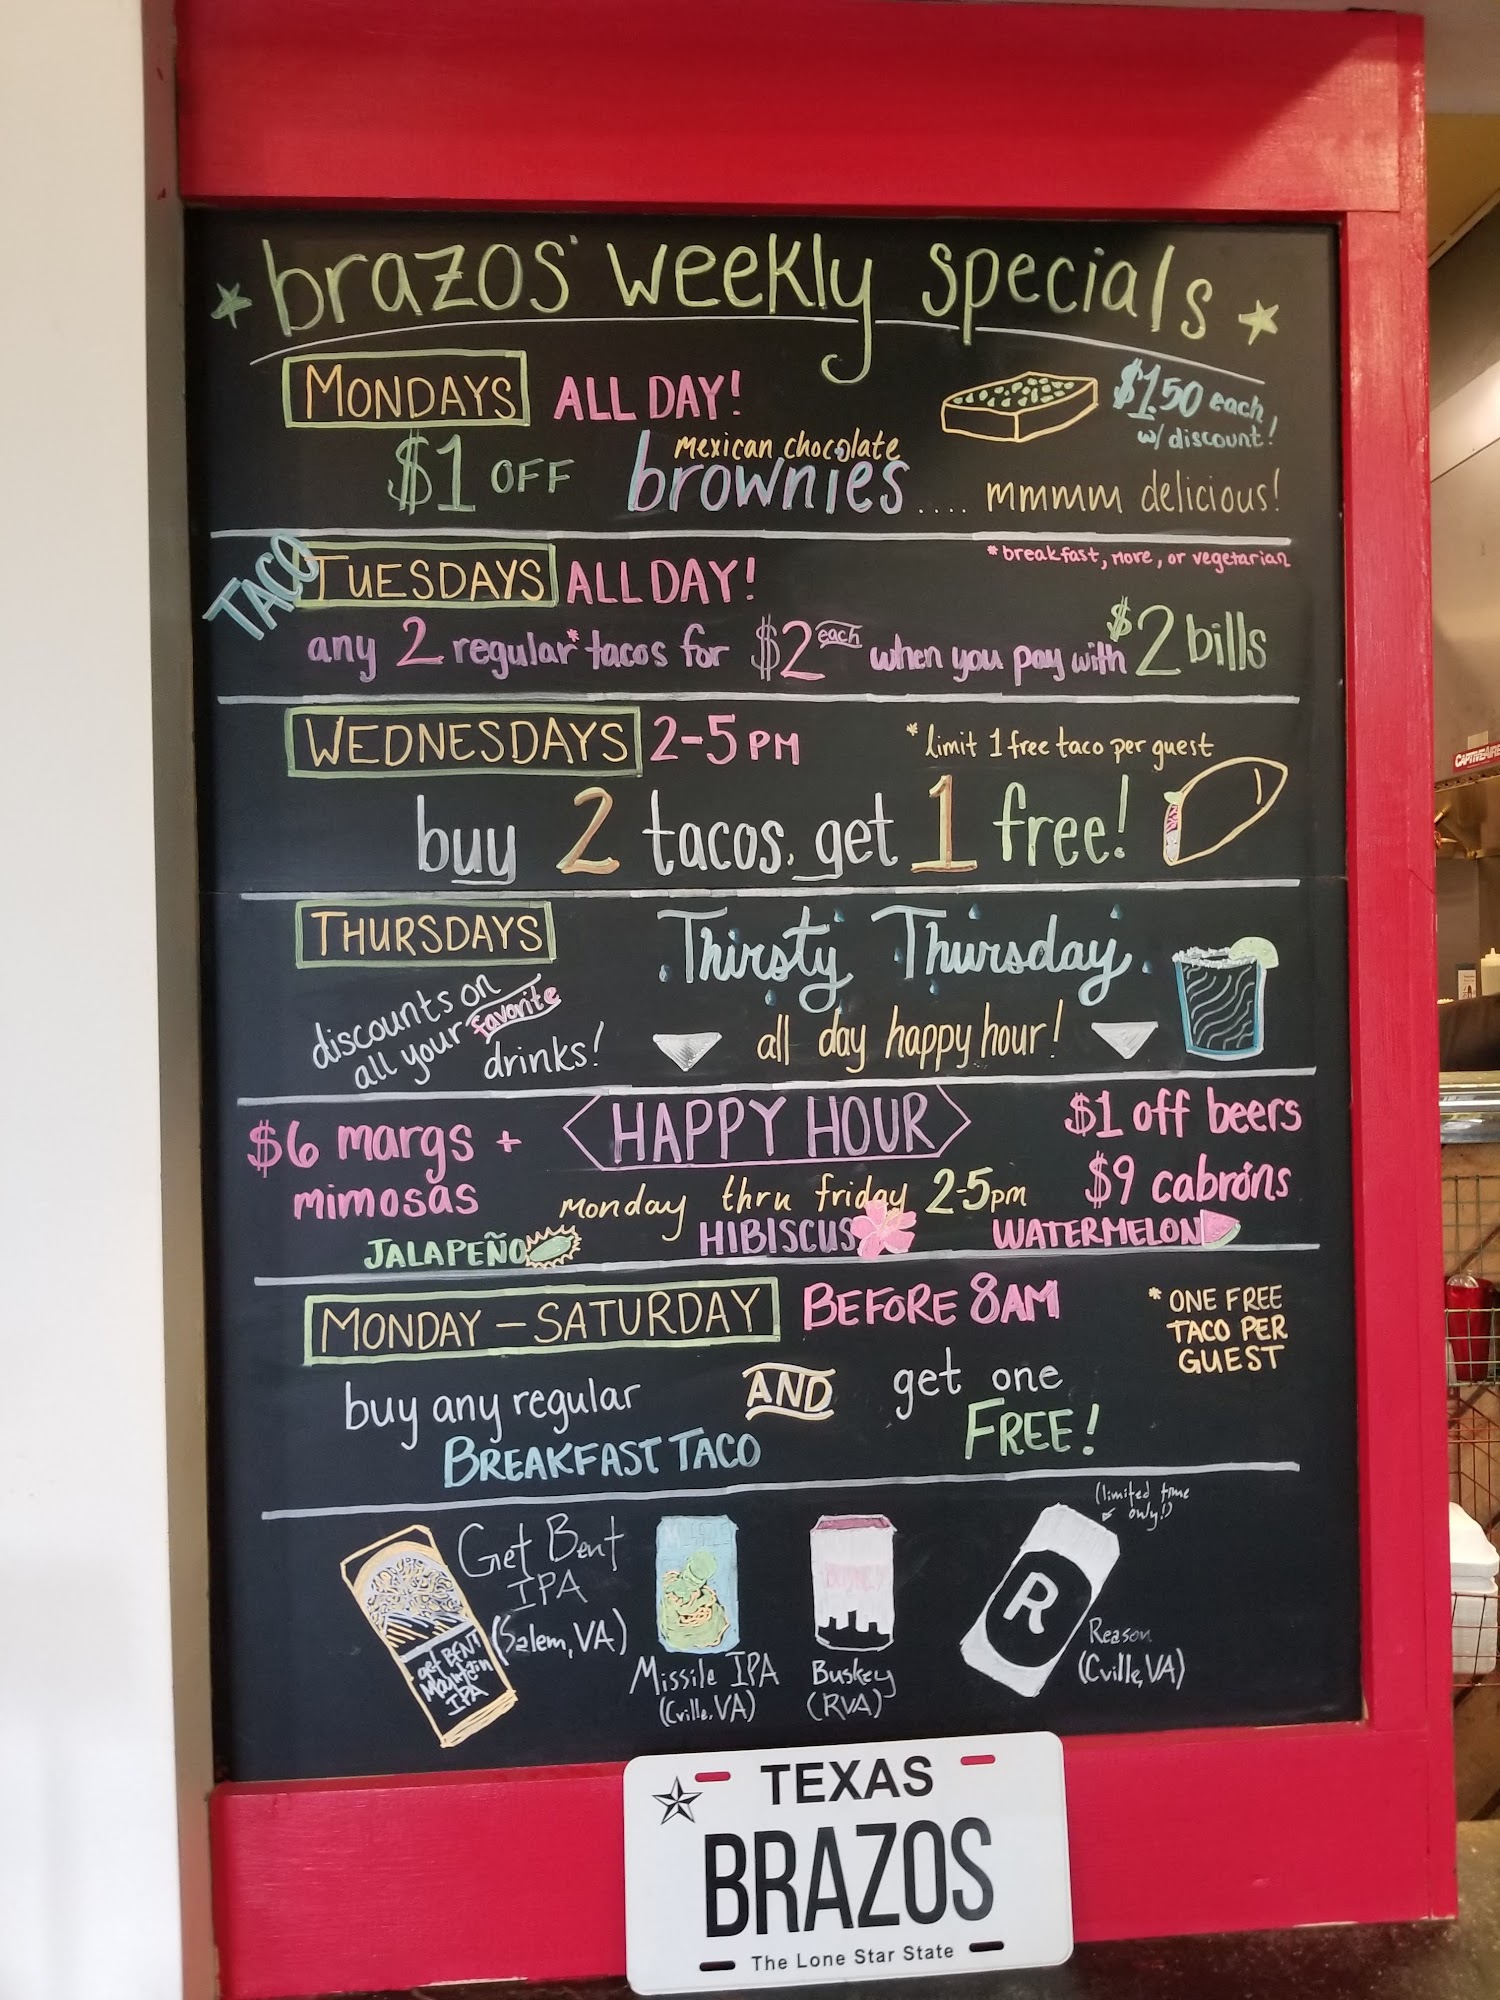 brazos' weekly specials
MONDAYS ALL DAY!
$1.50 each
w/ discount!
$1 OFF mexican chocolate
brownies.... mmmm delicious!
TACO TUESDAYS ALL DAY!
*breakfast, more, or vegetarian
any 2 regular* tacos for $2 each when you pay with $2 bills
WEDNESDAYS 2-5 PM
*limit 1 free taco per guest
buy 2 tacos, get 1 free!
THURSDAYS
Thirsty Thursday
discounts on
all your favorite
drinks!
all day happy hour!
HAPPY HOUR
$6 margs +
mimosas
$1 off beers
$9 cabróns
monday thru friday 2-5pm
JALAPEÑO
HIBISCUS
WATERMELON
MONDAY - SATURDAY BEFORE 8AM
* ONE FREE
TACO PER
GUEST
buy any regular
BREAKFAST TACO
AND
get one
FREE!
Get Bent
IPA
(Salem, VA)
get BENT
Mountain
IPA
Missile IPA
(Cville, VA)
BUSKEY
Buskey
(RVA)
(limited time
only!)
R
Reason
(Cville, VA)
TEXAS
BRAZOS
The Lone Star State
CAPTIVEAIRE